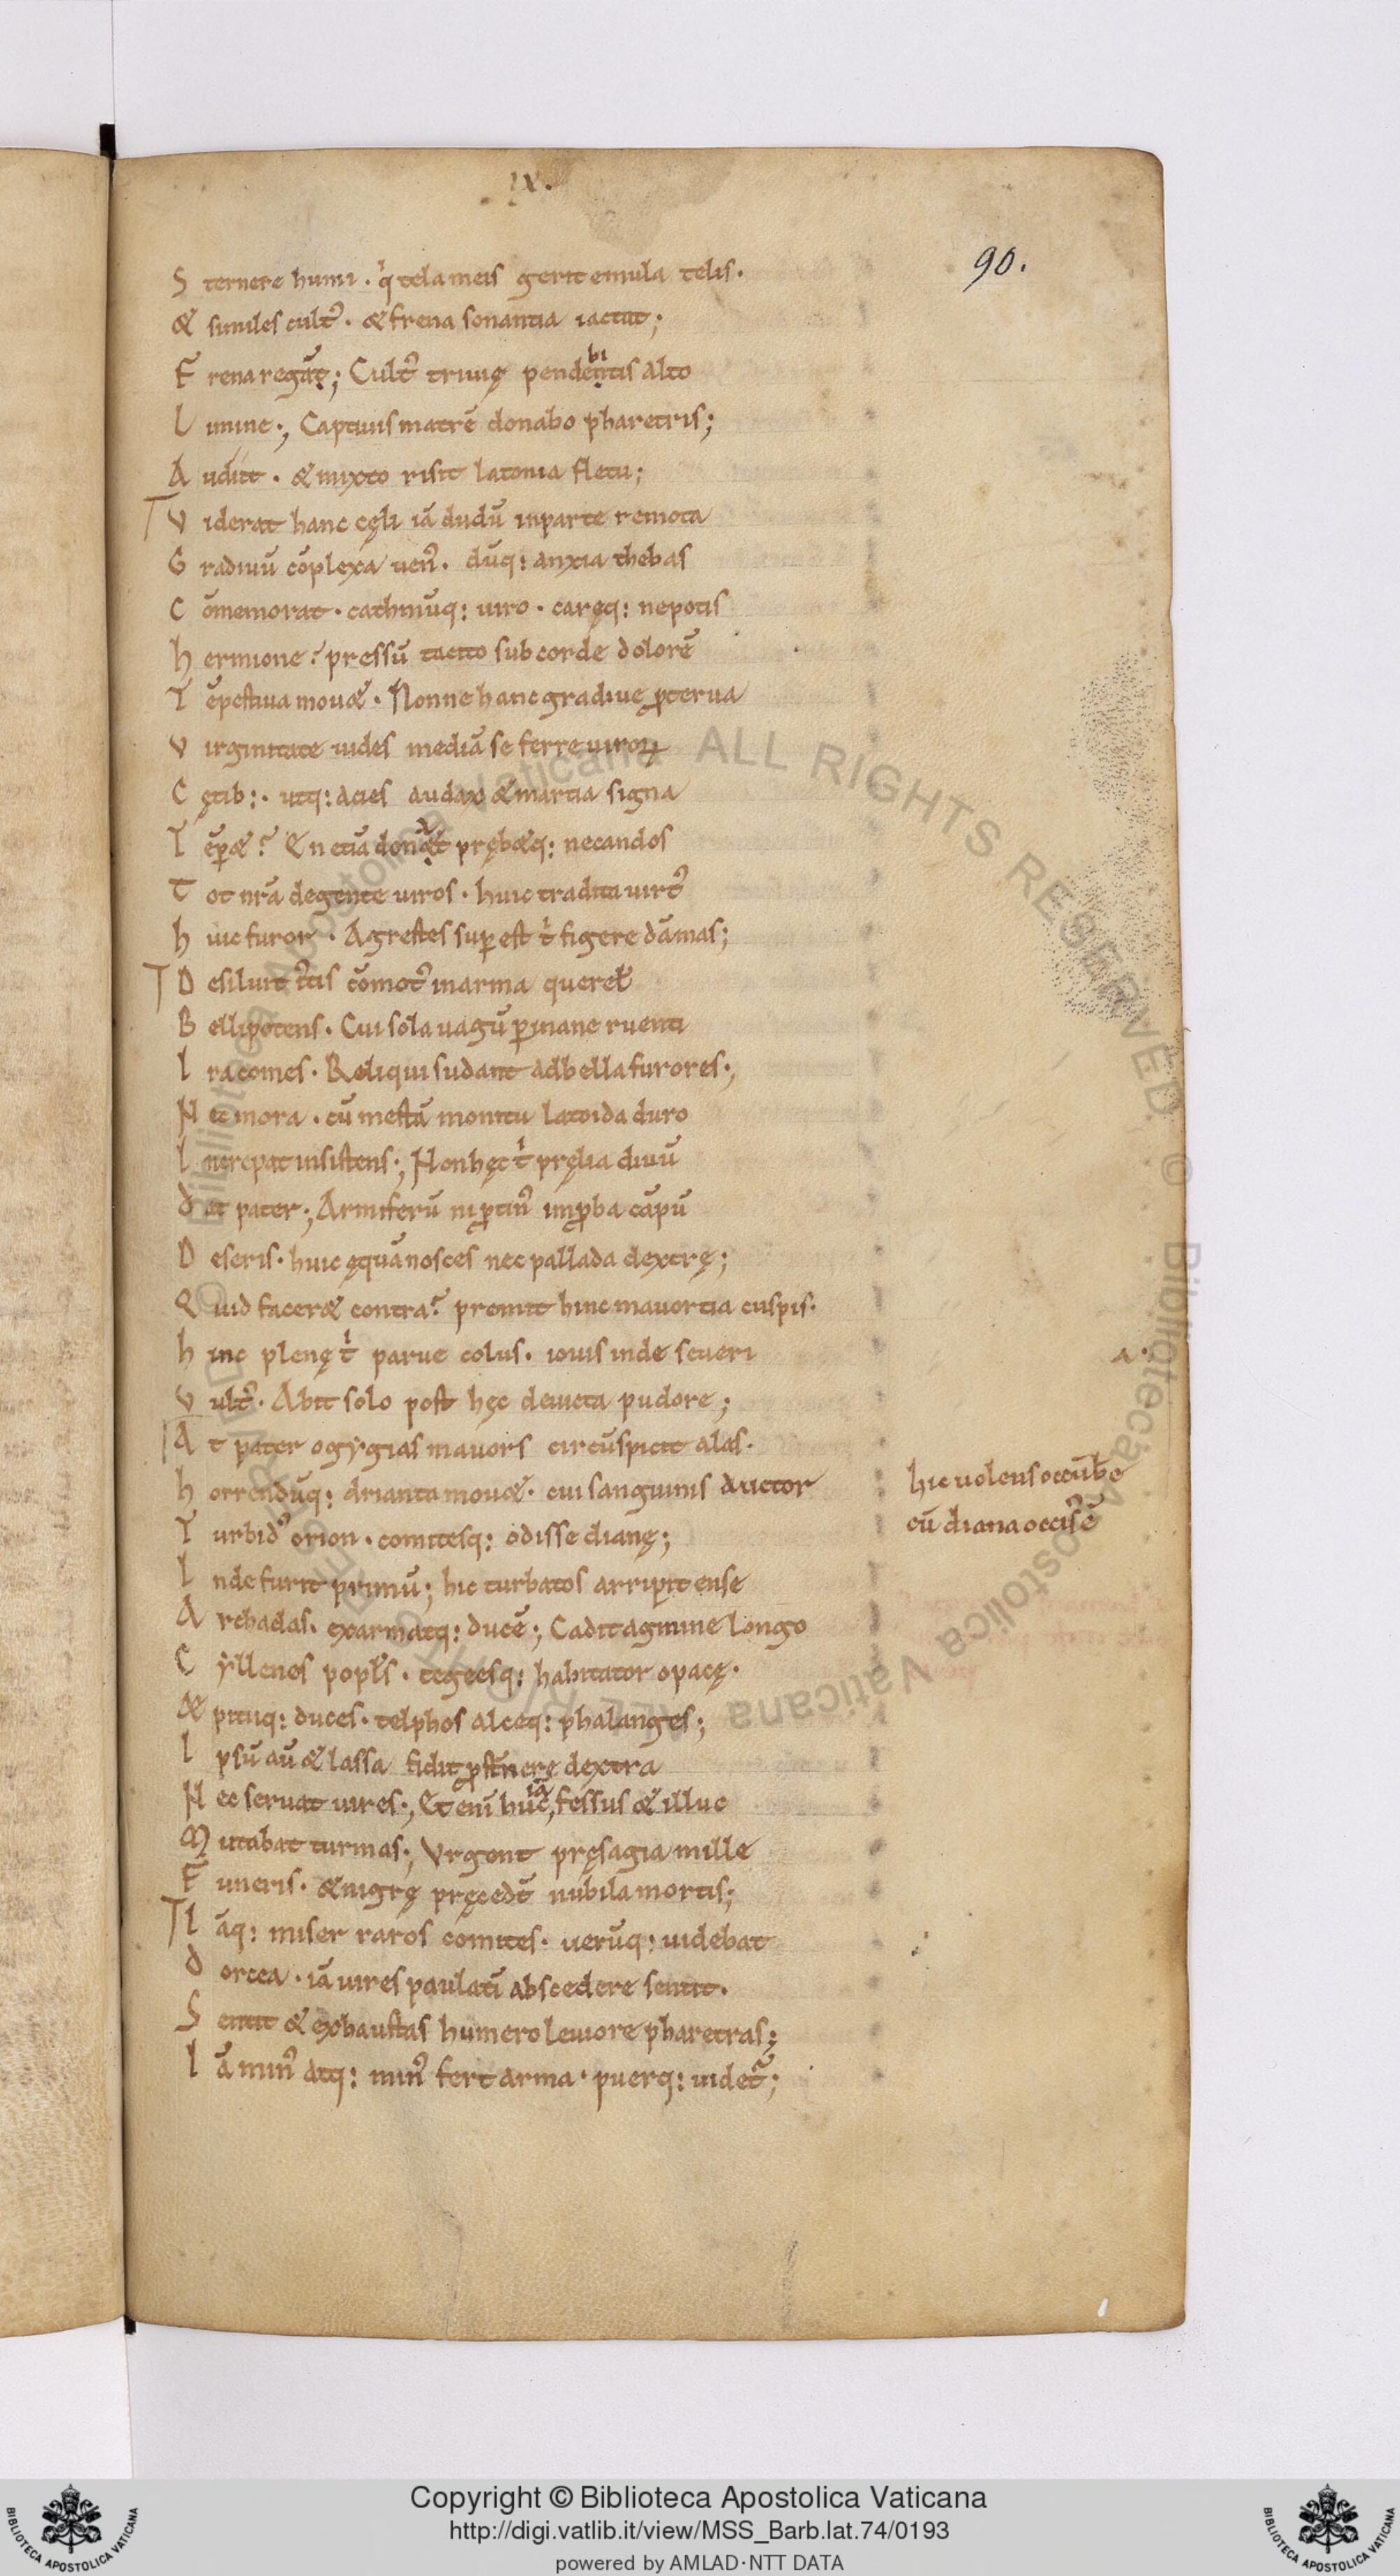 IX.
90.
S ternere humi . q̍ tela meis gerit emula telis.
& similes cult᷒ . & frena sonantia iactat;
F rena regāt; Cult᷒ triuię pendebintis alto
L imine ., Captiuis matrē donabo pharetris;
A udiit . & mixto risit latonia fletu;
V iderat hanc cęli iā dudū inparte remota
G radiuū cōplexa uen᷒ . dūq: anxia thebas
C ōmemorat . cathmūq: uiro . caręq: nepotis
h ermione? pressū tacito sub corde dolorē
T ēpestiua mou& . Nonne hanc gradiue ꝓterua
V irginitate uides mediā se ferre uiroꝝ
C ętib: . utq: acies audax & martia signa
T ēꝑ&? En etiā donat pręb&q: necandos
T ot nr̄a degente uiros . huic tradita uirt᷒
h uic furor . Agrestes suꝑest t̍ figere dāmas;
D esiluit ı̄tis cōmot᷒ inarma querel̄
B ellipotens . Cui sola uagū ꝑinane ruenti
I ra comes . Reliqui sudant adbella furores.,
N ec mora . cū mestā monitu latoida duro
I ncrepat insistens., Non hęc t̍ pręlia diuū
d at pater., Armiferū ni ꝓtin᷒ imꝓba cāpū
D eseris . huic ęquā nosces nec pallada dextrę;
Q uid facer& contra? premit hinc mauortia cuspis.
h inc plenę t̍ parue colus . iouis inde seueri
V ult᷒ . Abit solo post hęc deuicta pudore;
A t pater ogygias mauors circūspicit alas.
h orrendūq: drianta mou& . cui sanguinis auctor
T urbid᷒ orion . comitesq: odisse dianę;
I nde furit primū; hic turbatos arripit ense
A rchadas . exarmatq: ducē; Cadit agmine longo
C yllenes popl̄s . tegeesq: habitator opacę.
& pituq: duces . telphos alceq: phalanges;
I psū aū & lassa fidit ꝓst̄nere dextra
N ec seruat uires., Et eni huc, iā fessus & illuc
M utabat turmas., Vrgent pręsagia mille
F uneris . & nigrę pręcedt̄ nubila mortis;
I āq: miser raros comites . uerūq: uidebat
d orcea . iā uires paulatı̄ abscedere sentit.
S entit & exhaustas humero leuiore pharetras;
I ā min᷒ atq: min᷒ fert arma . puerq: uidet᷑;
hic uolens occūbe
cū diana occisē
Copyright © Biblioteca Apostolica Vaticana
http://digi.vatlib.it/view/MSS_Barb.lat.74/0193
powered by AMLAD·NTT DATA
BIBLIOTECA APOSTOLICA VATICANA
BIBLIOTECA APOSTOLICA VATICANA
© Biblioteca Apostolica Vaticana ALL RIGHTS RESERVED © Biblioteca Apostolica Vaticana ALL RIGHTS RESERVED